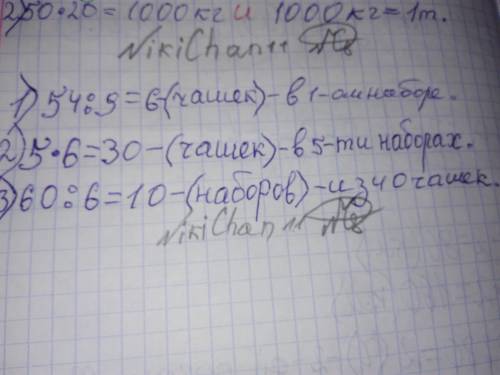 2) 50·20 = 1000 кг и 1000 кг = 1т.
NikiChan11
1) 54:9=6-(чашек)-в 1-ом наборе.
2) 5·6=30-(чашек)-в 5-ти наборах.
3) 60:6=10-(наборов)-из 40 чашек.
NikiChan11